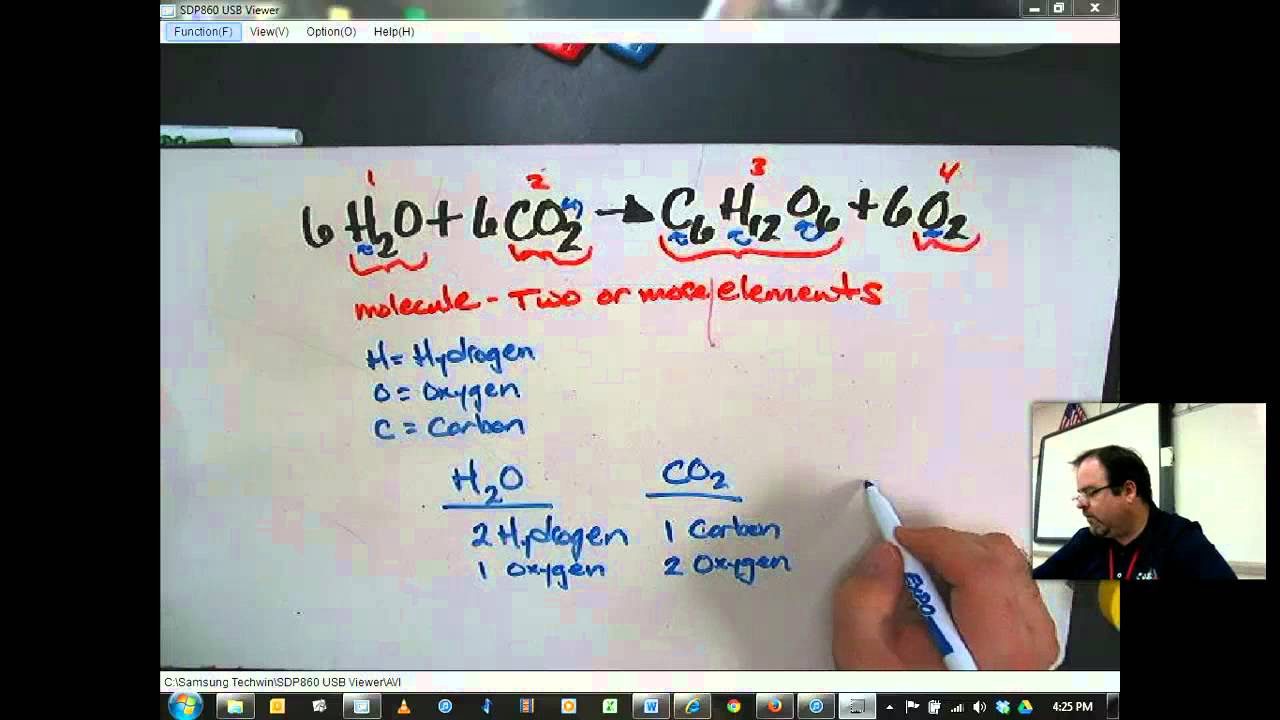 SDP860 USB Viewer
Function(F) View(V) Option(O) Help(H)
1 2 3 4
6H₂O + 6CO₂ → C₆H₁₂O₆ + 6O₂
molecule - Two or more elements
H = Hydrogen
O = Oxygen
C = Carbon
H₂O CO₂
2 Hydrogen 1 Carbon
1 Oxygen 2 Oxygen
EXPO
C:\Samsung Techwin\SDP860 USB Viewer\AVI
4:25 PM